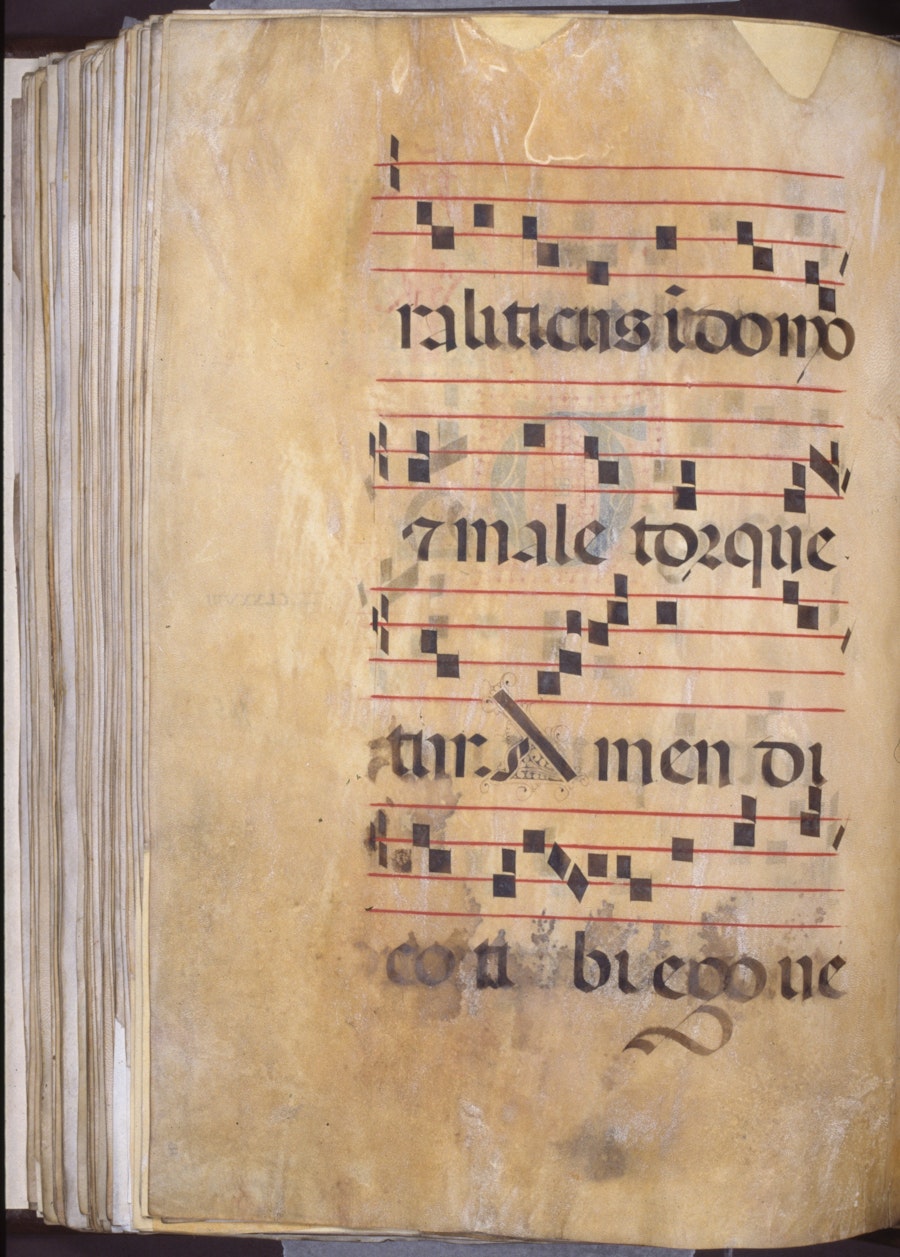 raliticus i domo
⁊ male torque
tur. Amen di
co ti bi ego ve